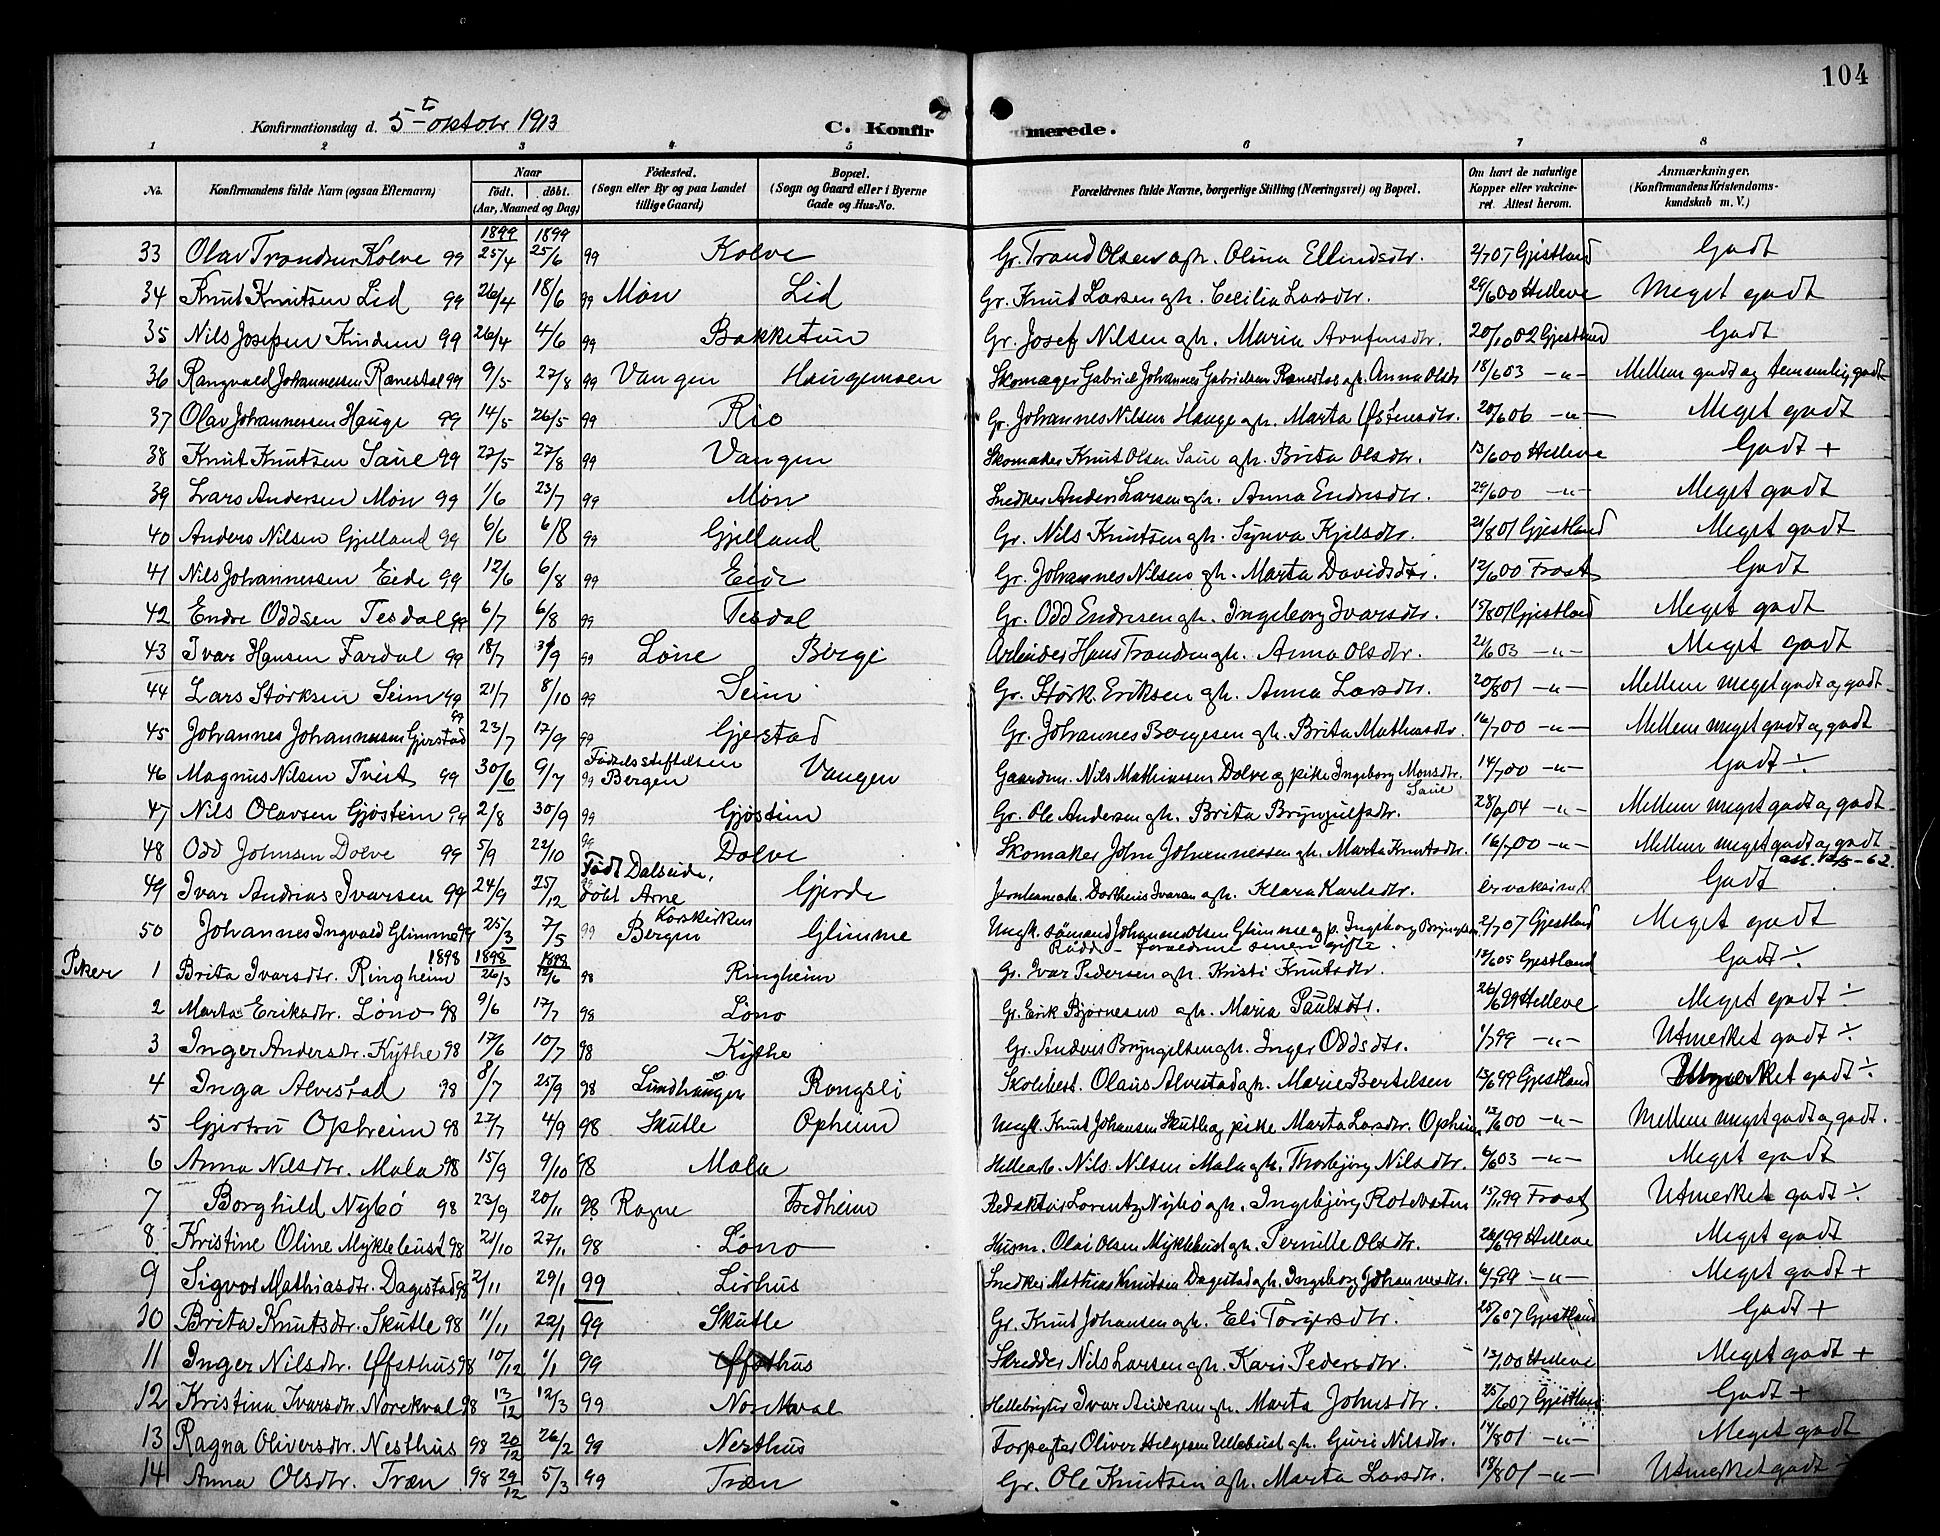 104
Konfirmationsdag d. 5te oktobr 1913 C. Konfirmerede.
1 2 3 4 5 6 7 8
No. Konfirmandens fulde Navn (ogsaa Efternavn) Naar født. døbt. (Aar, Maaned og Dag) Fødested. (Sogn eller By og paa Landet tillige Gaard) Bopæl. (Sogn og Gaard eller i Byerne Gade og Hus-No. Forældrenes fulde Navne, borgerlige Stilling (Næringsvei) og Bopæl. Om havt de naturlige Kopper eller vakcineret. Attest herom. Anmærkninger, (Konfirmandens Kristendomskundskab m. V.)
1899 1899
33 Olav Trondsen Kolve 99 25/4 25/6 99 Kolve Gr. Trond Olsen og h. Olina Ellendsdtr. 2/7 07 Gjestland Godt
34 Knut Knutsen Lid 99 26/4 18/6 99 Møn Lid Gr. Knut Larsen og h. Cecilia Larsdtr. 29/6 00 Helleve Meget godt
35 Nils Josefsen Kinden 99 26/4 4/6 99 Bakketun Gr. Josef Nilsen og h. Maria Arnfinsdtr. 20/10 02 Gjestland Godt
36 Rangvald Johannessen Ranestad 99 9/5 27/8 99 Vangen Haugemoen Skomager Gabriel Johannes Gabrielsen Ranestad og h. Anna Olsdtr 18/6 03 -"- Mellem godt og temmelig godt
37 Olav Johannessen Hauge 99 14/5 26/5 99 Rio Gr. Johannes Nilsen Hauge og h. Marta Østensdtr. 20/6 06 -"- Meget godt
38 Knut Knutsen Saue 99 22/5 27/8 99 Vangen Skomaker Knut Olsen Saue og h. Brita Olsdtr. 13/6 00 Helleve Godt +
39 Lars Andersen Møn 99 1/6 23/7 99 Møn Snedker Anders Larsen og h. Anna Endresdtr. 29/6 00 -"- Meget godt
40 Anders Nilsen Gjelland 99 6/6 6/8 99 Gjelland Gr. Nils Knutsen og h. Synva Kjelsdtr. 21/8 01 Gjestland Meget godt
41 Nils Johannessen Eide 99 12/6 6/8 99 Eide Gr. Johannes Nilsen og h. Marta Davidsdtr. 12/6 00 Frost Godt
42 Endre Oddsen Tesdal 99 6/7 6/8 99 Tesdal Gr. Odd Endresen og h. Ingeborg Ivarsdtr. 15/8 01 Gjestland Meget godt
43 Ivar Hansen Fardal 99 18/7 3/9 99 Løne Børge Arbeider Hans Trondsen og h. Anna Olsdtr. 22/6 03 -"- Meget godt
44 Lars Størksen Seim 99 21/7 8/10 99 Seim Gr. Størk Eriksen og h. Anna Larsdtr. 20/8 01 -"- Mellem meget godt og godt
45 Johannes Johannessen Gjerstad 99 23/7 17/9 99 Gjerstad Gr. Johannes Børgesen og h. Brita Mathiasdtr. 16/7 00 -"- Mellem meget godt og godt
46 Magnus Nilsen Tvert 99 30/6 9/7 99 Fødselsstiftelsen Bergen Vangen Gaardm. Nils Mathiassen Dolve og pike Ingeborg Monsdtr. Saue 14/7 00 -"- Godt ÷
47 Nils Olavsen Gjøstein 99 2/8 30/9 99 Gjøstein Gr. Ole Andersen og h. Brita Brynjulfsdtr. 04 -"- Mellem meget godt og godt
48 Odd Johnsen Dolve 99 5/9 22/10 99 Dolve Skomaker John Johannessen og h. Marta Knutsdtr. 16/7 00 -"- Mellem meget godt og godt
att. 12/5-62.
49 Ivar Andrias Ivarsen 99 24/9 25/12 99 Født Dalseide, døbt Arne Gjerde Klara Karlsdtr. er vaksinert Godt
50 Johannes Ingvald Glimme 99 25/3 7/5 99 Bergen Korskirken Glimme Ungk. sømand Johannes Olsen Glimme og p. Ingeborg Brynjelsen Rødd - forældrene senere gifte. 2/7 07 Gjestland Meget godt
Piker 1 Brita Ivarsdtr. Ringheim 1898 1898 26/3 1898 12/6 98 Ringheim Gr. Ivar Pedersen og h. Kristi Knutsdtr. 12/6 05 Gjestland Godt ÷
2 Marta Eriksdtr. Løno 98 9/6 17/7 98 Løno Gr. Erik Bjørnesen og h. Maria Paulsdtr. 26/6 99 Helleve Meget godt ÷
3 Inger Andersdtr. Kythe 98 17/6 10/7 98 Kythe Gr. Anders Bryngelsen og h. Inger Oddsdtr. 1/7 99 -"- Utmerket godt ÷
4 Inga Alvestad 98 8/7 25/9 98 Lundhaugen Rongsli Skolebest. Olaus Alvestad og h. Marie Bertelsen 13/6 99 Gjestland Utmerket godt ÷
5 Gjertru Opheim 98 27/7 4/9 98 Skutle Opheim Ungk. Knut Johansen Skutle og pike Marta Larsdtr. Opheim 13/6 00 -"- Mellem meget godt og godt.
6 Anna Nilsdtr. Mala 98 15/9 9/10 98 Mala Hellearb. Nils Nilsen Mala og h. Thorbjørg Nilsdtr. 4/6 03 -"- Meget godt
7 Borghild Nybø 98 23/9 20/11 98 Rogne Tredheim Redaktør Lorentz Nybø og h. Ingebjørg Rotevatn 15/11 99 Frost Utmerket godt ÷
8 Kristine Oline Myklebust 98 21/10 27/11 98 Løno Husm. Olai Olsen Myklebust og h. Pernille Olsdtr. 26/6 99 Helleve Meget godt
9 Sigvor Mathiasdtr. Dagestad 98 2/11 29/1 99 Lirhus Snedker Mathias Knutsen Dagestad og h. Ingeborg Johannesdtr. 6/7 99 -"- Meget godt +
10 Brita Knutsdtr. Skutle 98 11/11 22/1 99 Skutle Gr. Knut Johansen og h. Eli Torgersdtr. 25/6 07 Gjestland Godt +
11 Inger Nilsdtr. Øfsthus 98 10/12 1/1 99 Øfsthus Skredder Nils Larsen og h. Kari Pedersdtr. 13/7 00 Helleve Meget godt +
12 Kristina Ivarsdtr. Norekval 98 13/12 12/3 99 Norekval Hellebryter Ivar Andersen og h. Marta Johnsdtr. 25/6 07 Gjestland Godt +
13 Ragna Oliversdtr. Nesthus 98 20/12 26/2 99 Nesthus Forpagter Oliver Helgesen Ullebust og h. Guri Nilsdtr. 14/8 01 -"- Meget godt
14 Anna Olsdtr. Træn 98 29/12 5/3 99 Træn Gr. Ole Knutsen og h. Marta Larsdtr. 18/8 01 -"- Utmerket godt ÷